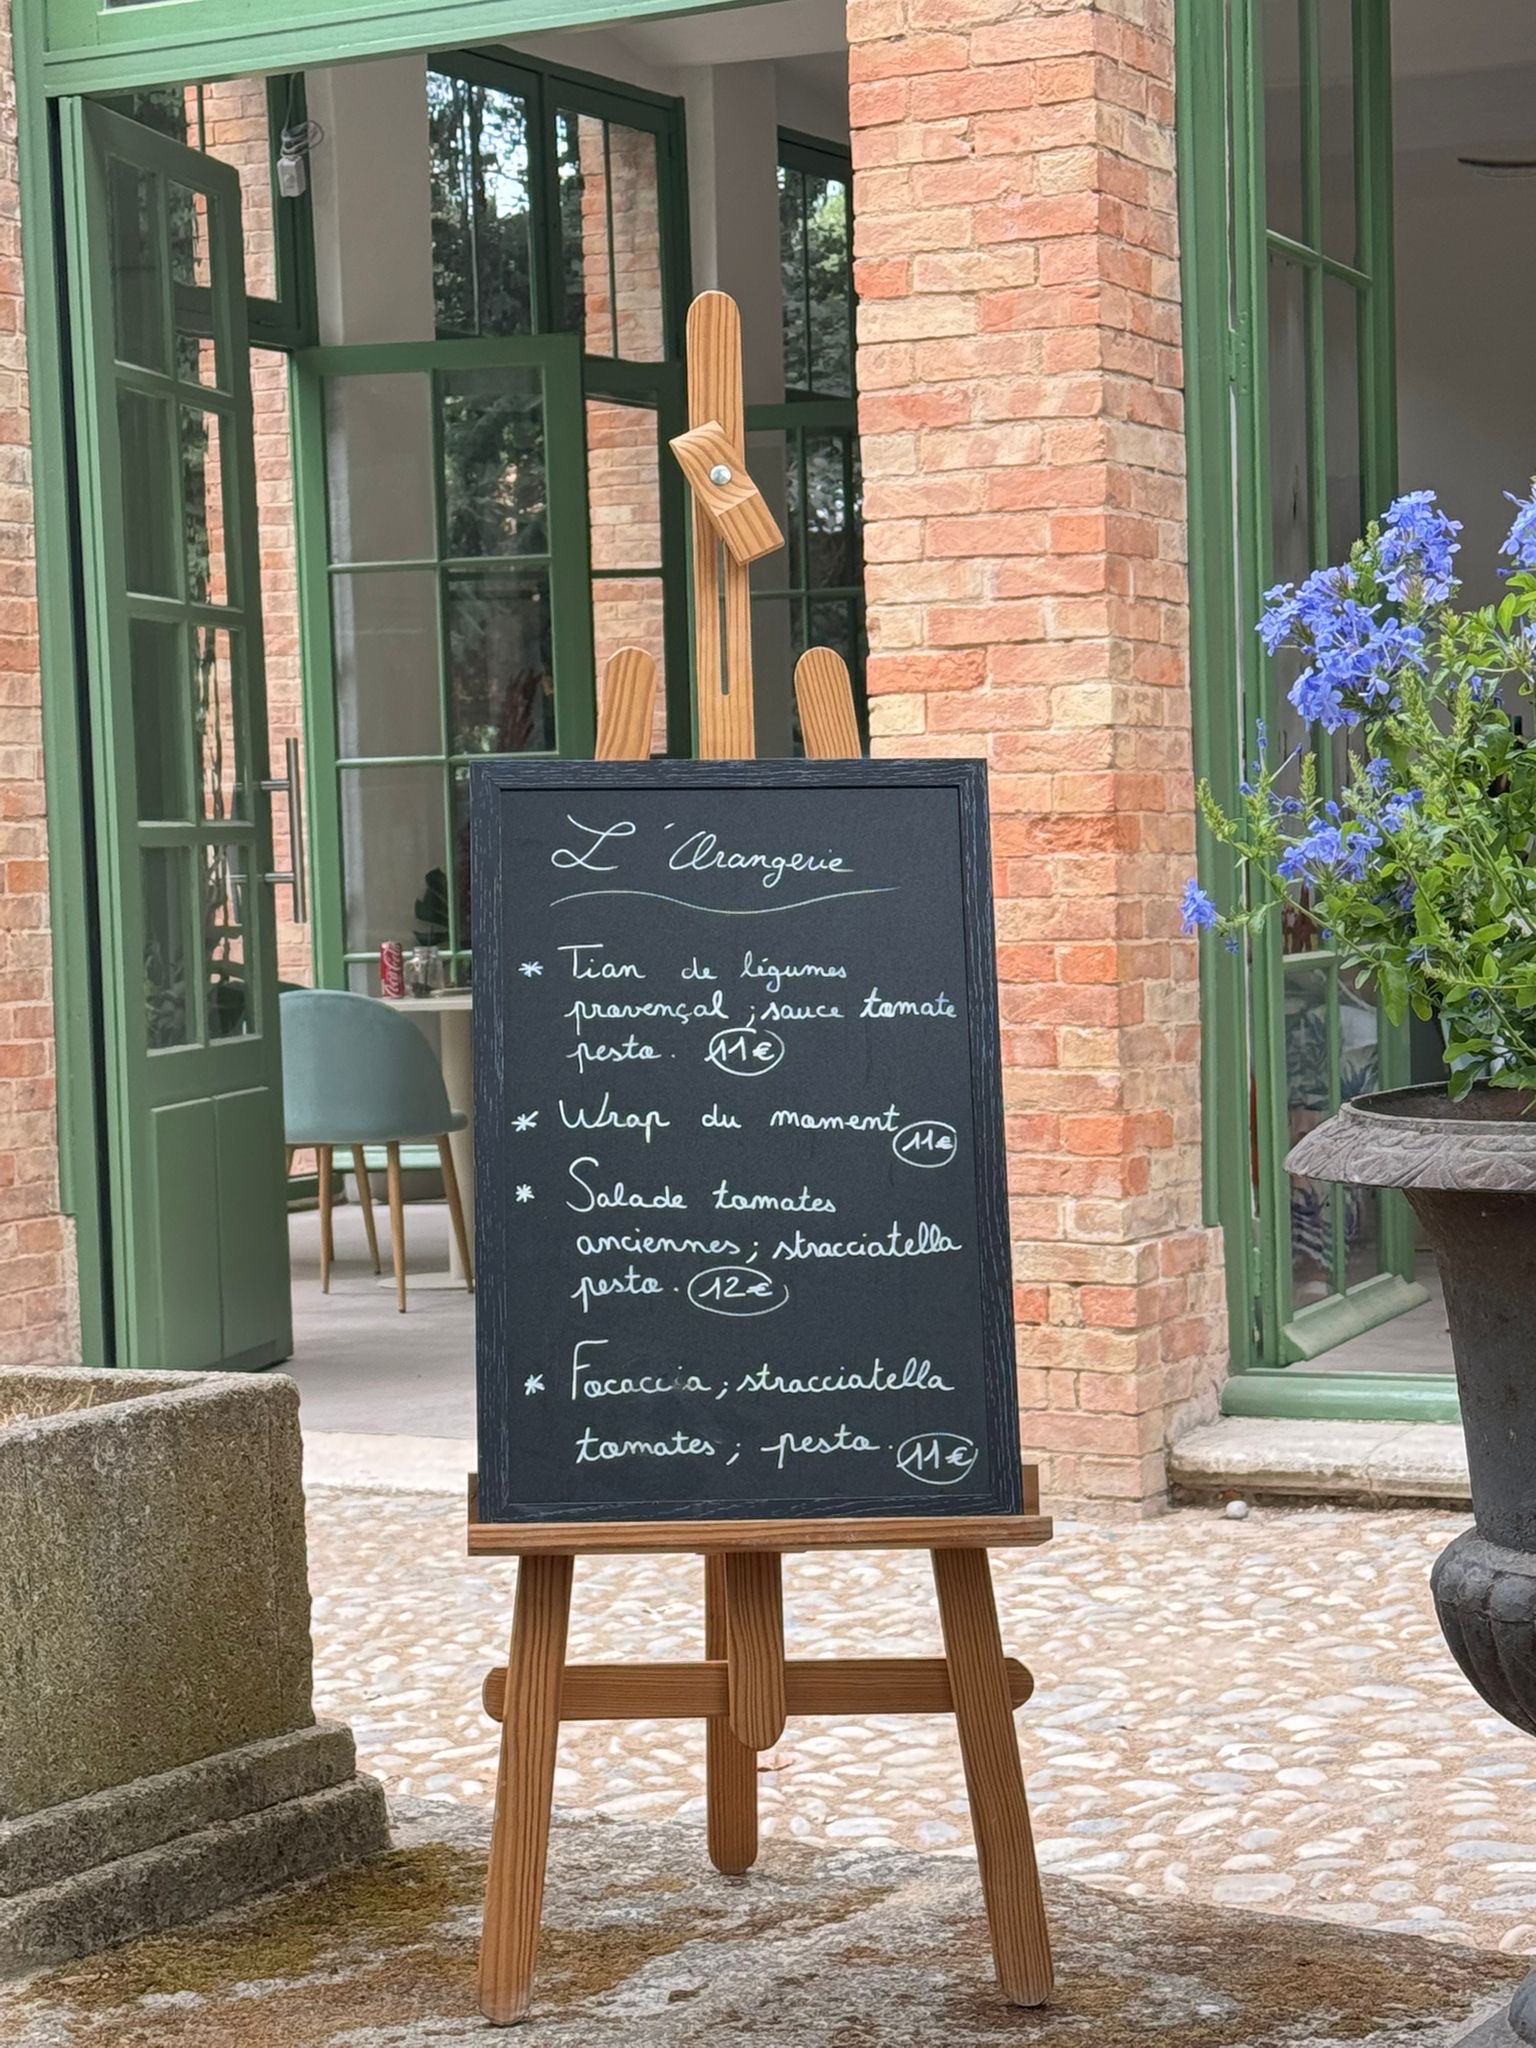 L'Orangerie
* Tian de légumes
provençal ; sauce tomate
pesto. 11€
* Wrap du moment 11€
* Salade tomates
anciennes ; stracciatella
pesto. 12€
* Focaccia ; stracciatella
tomates ; pesto. 11€
Coca-Cola